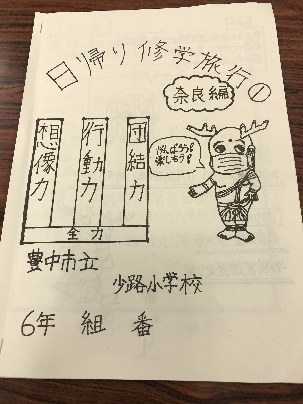 日帰り修学旅行①
奈良編
想像力
行動力
団結力
全力
がんばろう!
楽しもう!
豊中市立
少路小学校
6年 組 番